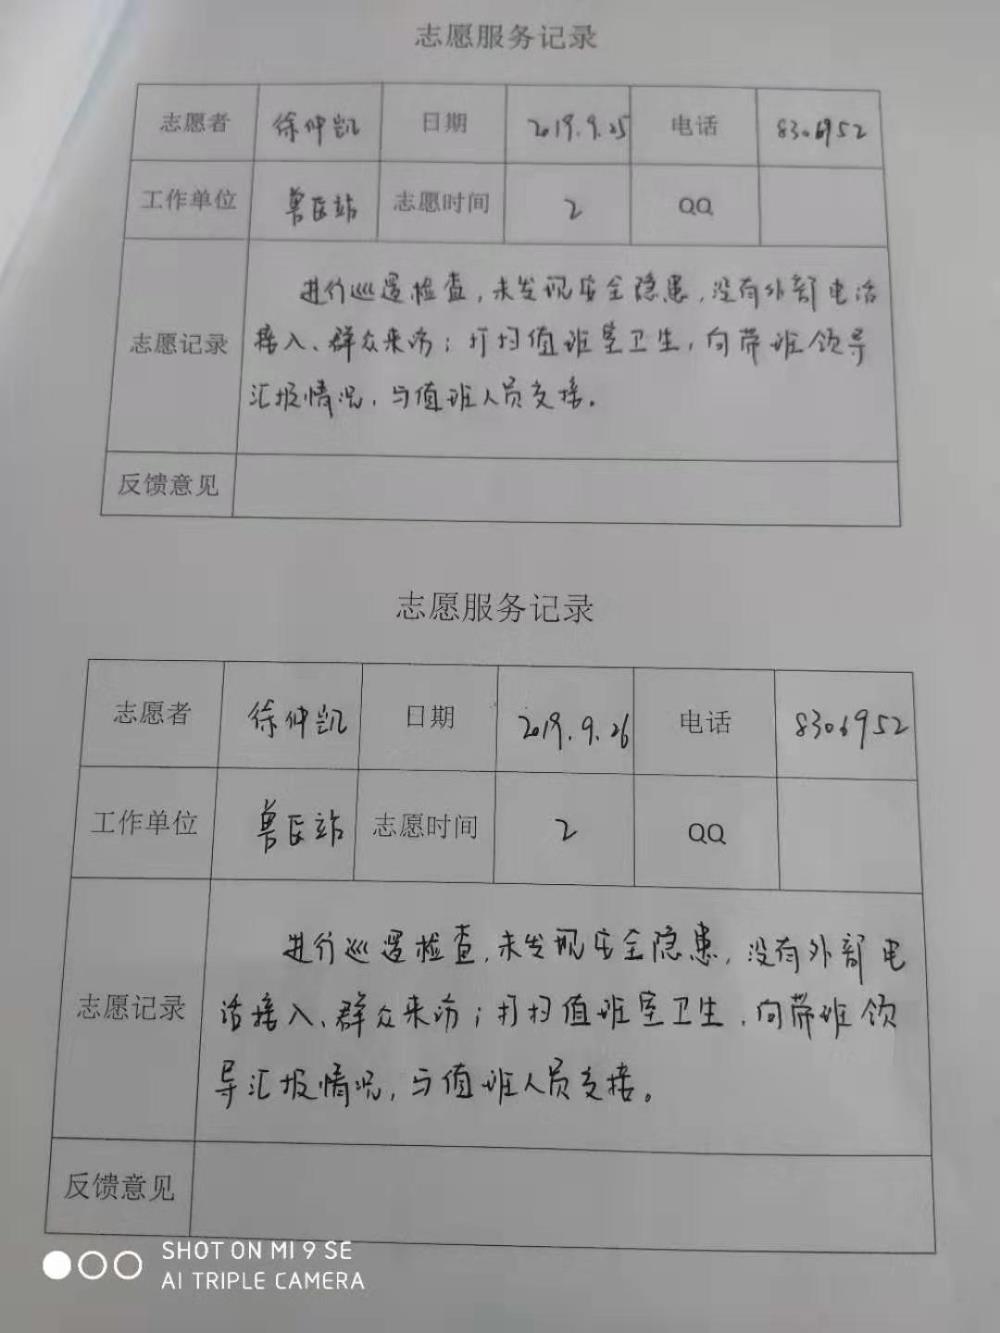 志愿服务记录
志愿者 徐仲凯 日期 2019.9.25 电话 8306952
工作单位 兽医站 志愿时间 2 QQ
志愿记录
进行巡逻检查,未发现安全隐患,没有外部电话
接入、群众来访;打扫值班室卫生,向带班领导
汇报情况,与值班人员交接。
反馈意见
志愿服务记录
志愿者 徐仲凯 日期 2019.9.26 电话 8306952
工作单位 兽医站 志愿时间 2 QQ
志愿记录
进行巡逻检查,未发现安全隐患,没有外部电
话接入、群众来访;打扫值班室卫生,向带班领
导汇报情况,与值班人员交接。
反馈意见
SHOT ON MI 9 SE
AI TRIPLE CAMERA